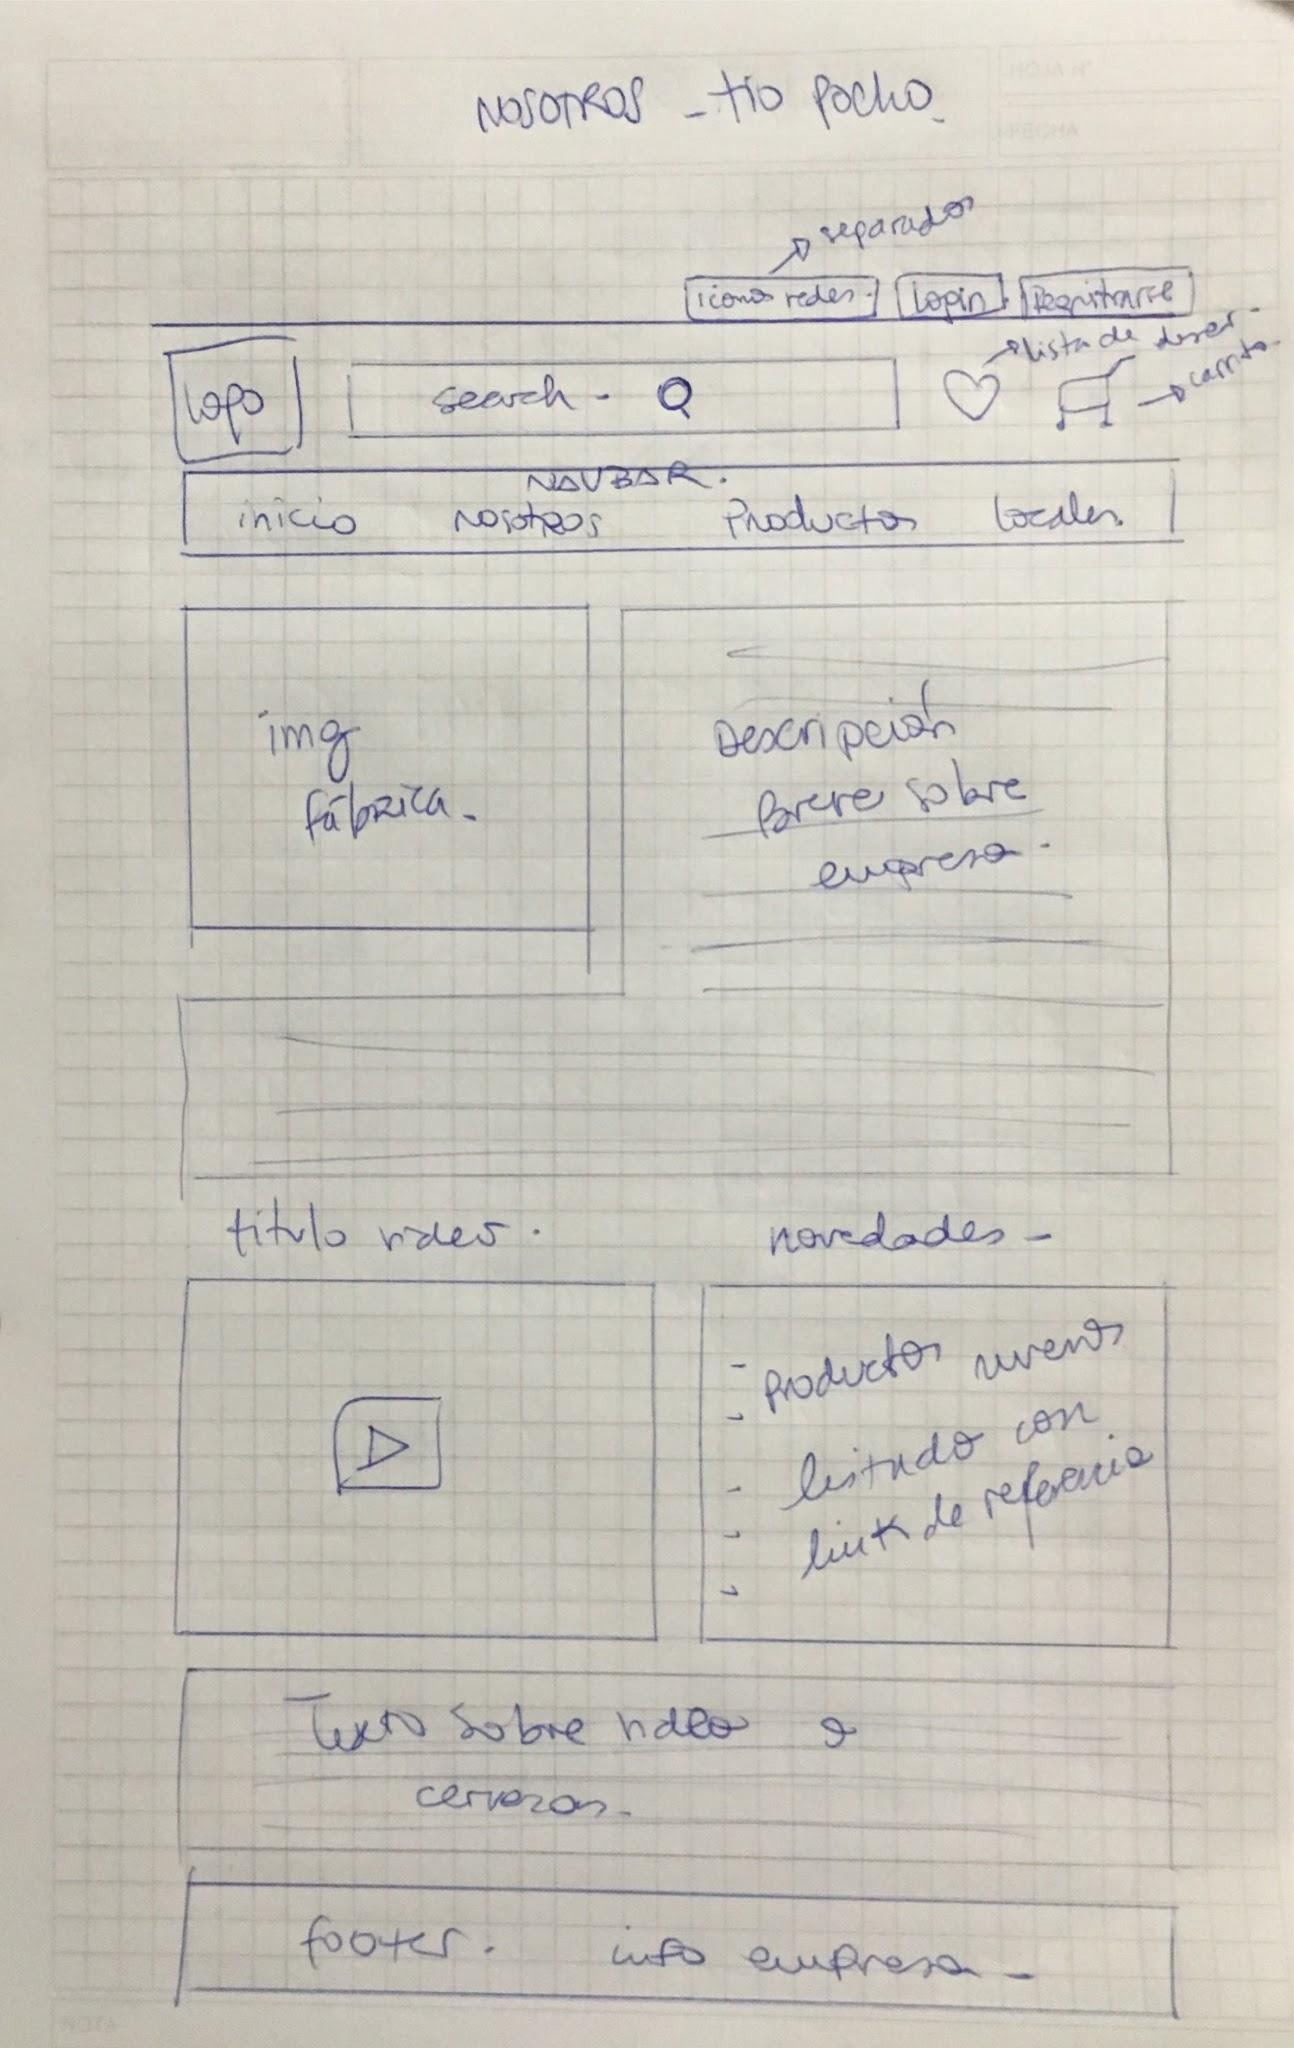 NOSOTROS - tío Pocho.
separados
iconos redes.
Login
Registrarse
lista de deseos
carrito
Logo
search -
NAVBAR.
inicio
NOSOTROS
Productos
Locales.
img
fábrica.
Descripción
Breve sobre
empresa.
título video.
novedades -
- Productos nuevos
listado con
link de referencia
Texto sobre video o
cervezas.
footer. info empresa -